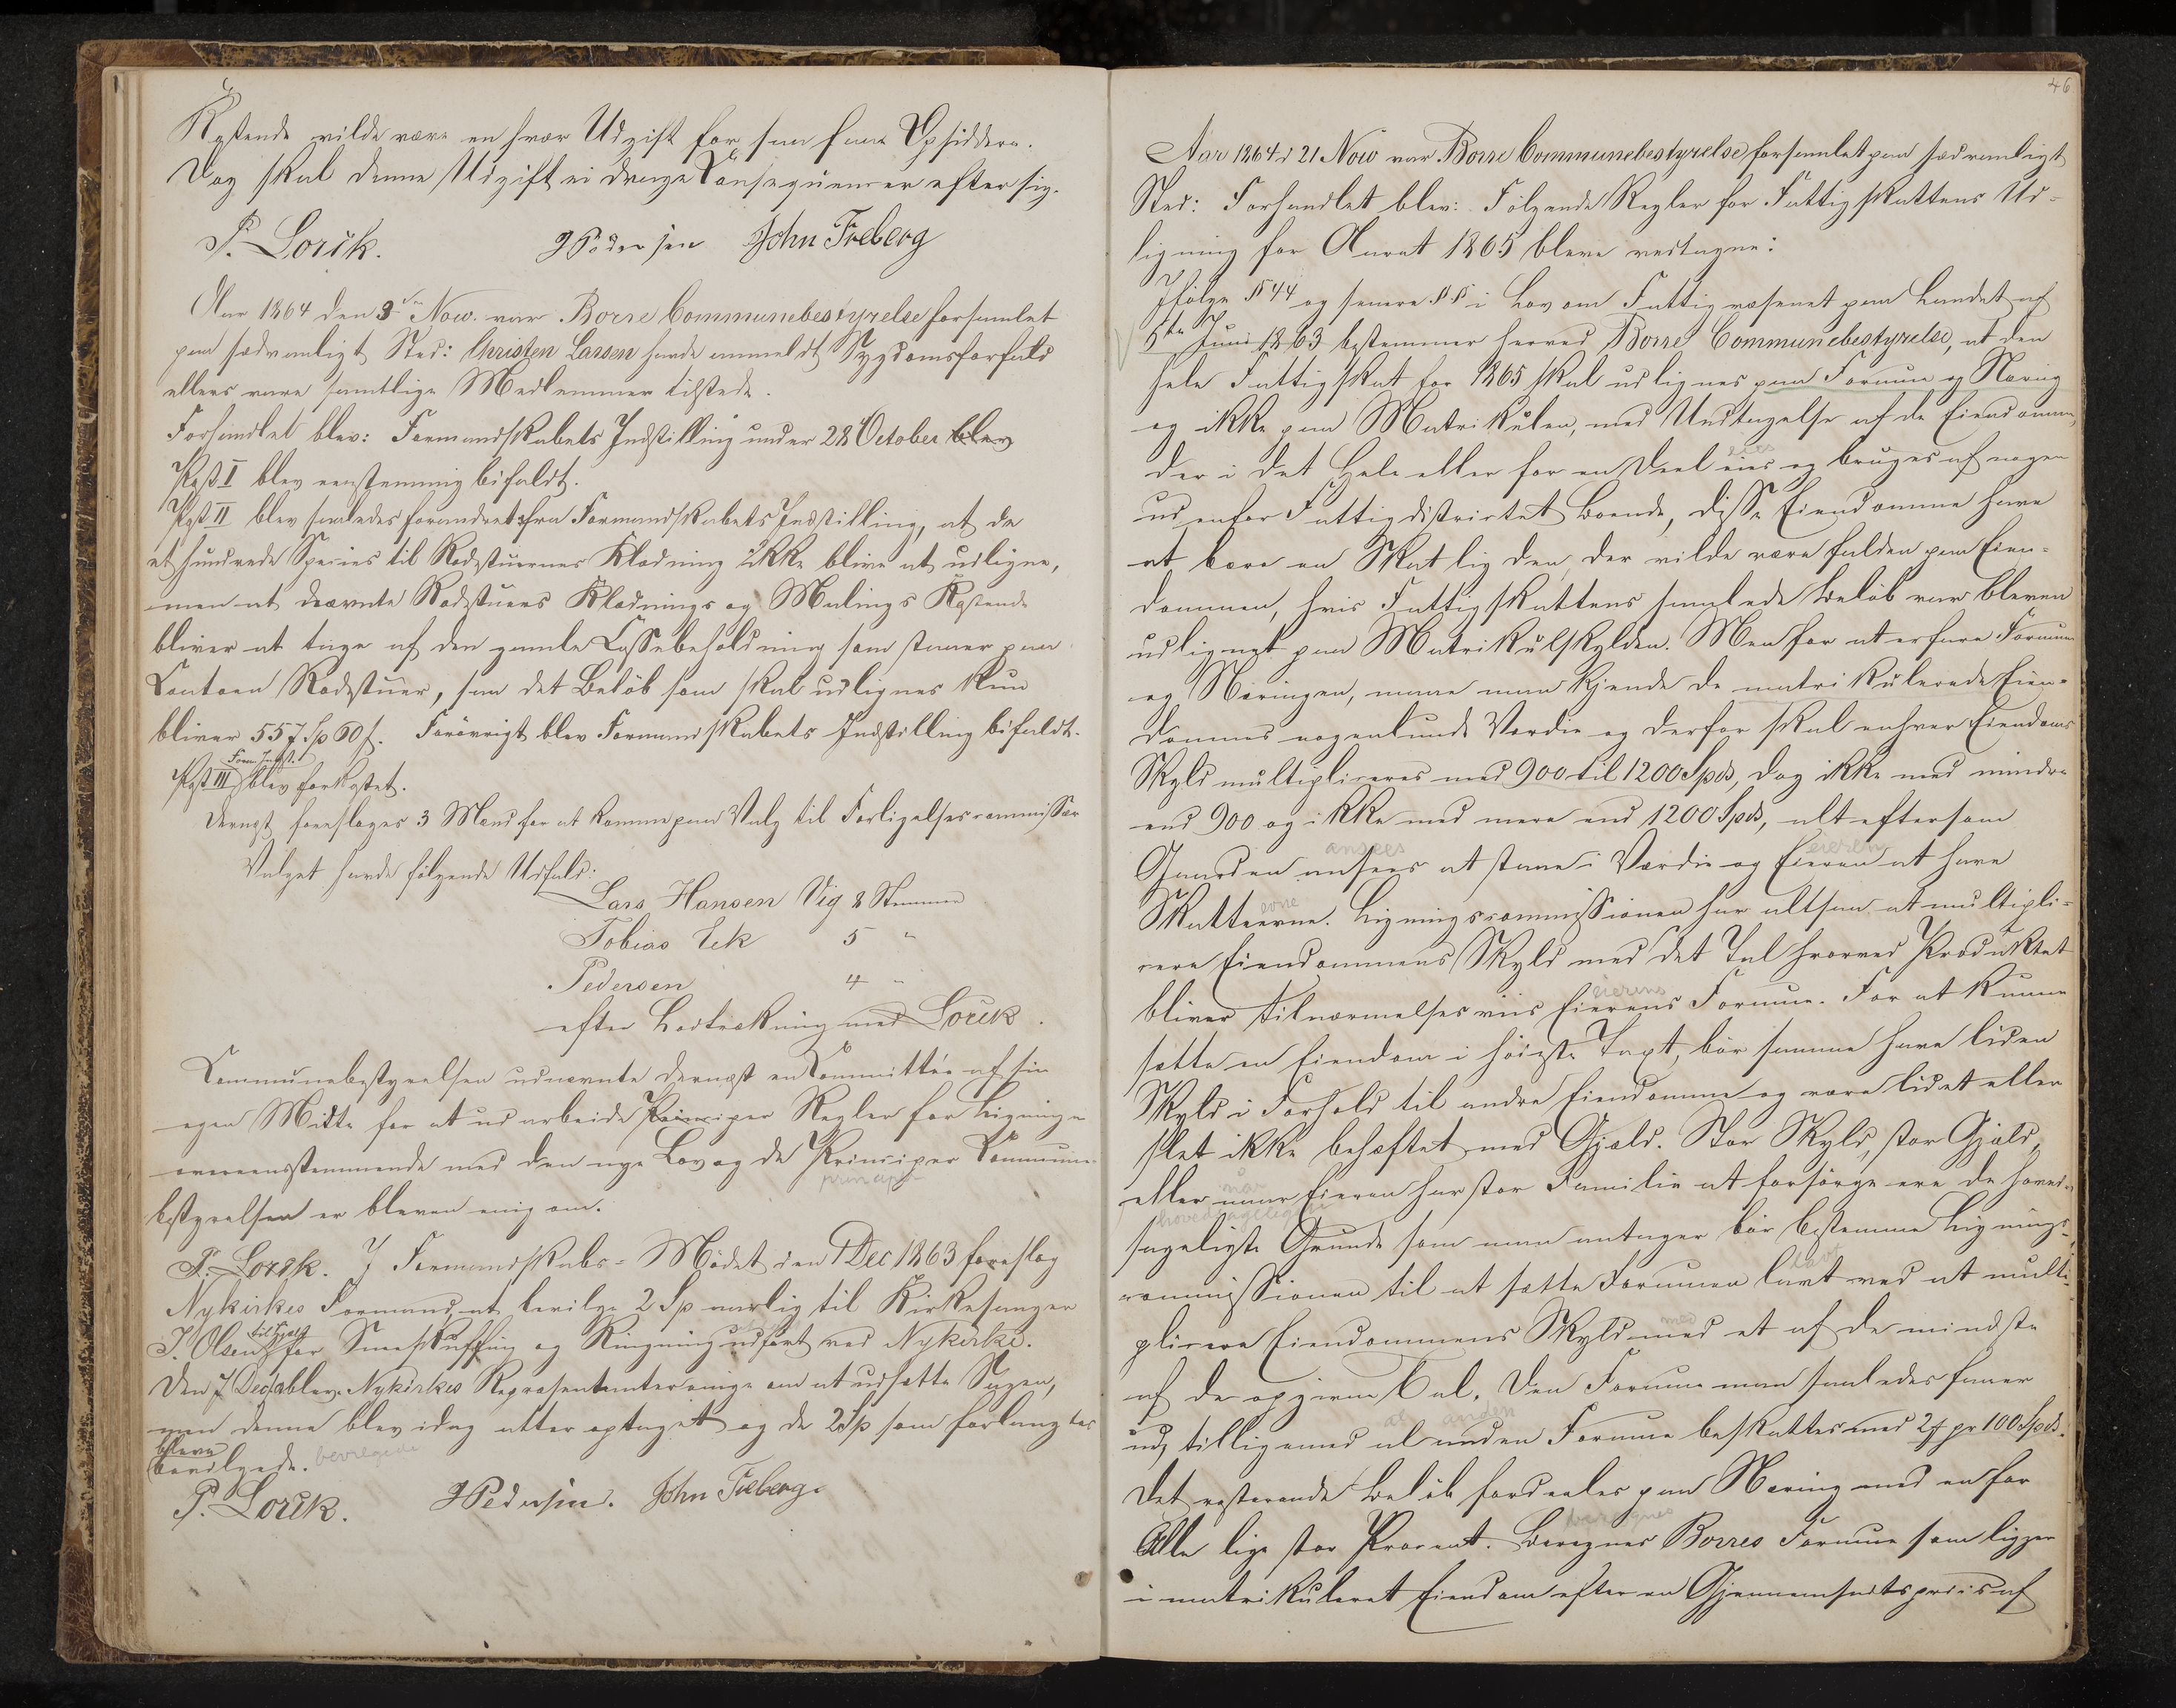 Kostende vilde være en svær Udgift for saa faae Opsiddere.
Dog skal denne Udgift ei drage Consequenser efter sig.
P. Lorck. HPedersen John Freberg
Aar 1864 den 3die Now. var Borre Communebestyrelse forsamlet
paa sædvanligt Sted: Christen Larsen havde anmeldt Sygdomsforfald
ellers vare samtlige Medlemmer tilstede.
Forhandlet blev: Formandskabets Indstilling under 28 October blev
Post I blev eenstemmig bifaldt.
Post II blev saaledes forandret fra Formandskabets Indstilling, at de
et hundrede Species til Rodestuernes Klædning ikke blive at udligne,
men at nævnte Rodestuers Klædnings og Malings Kostende
bliver at tage af den gamle Cassebeholdning som staaer paa
Contoen Rodestuer, saa det Beløb som skal udlignes kun
bliver 557 Sp 60 s. Forøvrigt blev Formandskabets Indstilling bifaldt.
Form. Indst.
Post III blev forkastet.
Dernæst foresloges 3 Mænd for at komme paa Valg til Forligelsescommissær
Valget havde følgende Udfald:
Lars Hansen Vig 8 Stemmer
Tobias Eek 5 "
Pedersen 4 "
efter Lodtrækning med Lorck.
Communebestyrelsen udnævnte dernæst en Committée af sin
egen Midte for at udarbeide Principer Regler for Ligningen
overeensstemmende med den nye Lov og de Principer Commune-
princip
bestyrelsen er bleven enig om.
P. Lorck. I Formandskabs-Mødet den 1 Dec 1863 foreslog
Nykirkes Formand, at bevilge 2 Sp aarlig til Kirkesanger
J. Olsen til Hjælp for Sneeskuffing og Ringning udført ved Nykirke.
Den 7 Dec blev Nykirkes Repræsentanter enige om at udsætte Sagen,
men denne blev idag atter optaget og de 2 Sp som forlangtes
bleve
bevilgede. bevilgede
P. Lorck. HPedersen. John Freberg.
46
Aar 1864 d 21 Now var Borre Communebestyrelse forsamlet paa sædvanligt
Sted: Forhandlet blev: Følgende Regler for Fattigskattens Ud-
ligning for Aaret 1865 bleve vedtagne:
Ifølge § 44 og senere §§ i Lov om Fattigvæsenet paa Landet af
6te Juni 1863 bestemmer herved Borre Communebestyrelse, at den
hele Fattigskat for 1865 skal udlignes paa Formue og Næring
og ikke paa Matrikulen, med Undtagelse af de Eiendomme,
der i det Hele eller for en Deel eies og bruges af nogen
udenfor Fattigdistrictet Boende, disse Eiendomme have
at bære en Skat lig den, der vilde være falden paa Eien-
dommen, hvis Fattigskattens samlede Beløb var bleven
udlignet paa Matrikulskylden. Men for at erfare Formue
og Næringen, maae man kjende de matrikulerede Eien-
dommes nogenlunde Værdie og derfor skal enhver Eiendoms
Skyld multipliceres med 900 til 1200 Spd, dog ikke med mindre
end 900 og ikke med mere end 1200 Spd, alt eftersom
ansees eieren
Gaarden ansees at staae i Værdie og Eieren at have
evne
Skatteevne. Ligningscommissionen har altsaa at multipli-
cere Eiendommens Skyld med det Tal hvorved Produktet
eierens
bliver tilnærmelsesviis Eierens Formue. For at kunne
sætte en Eiendom i høieste Taxt, bør samme have liden
Skyld i Forhold til andre Eiendomme og være lidet eller
slet ikke behæftet med Gjæld. Stor Skyld, stor Gjæld,
når
eller naar Eieren har stor Familie at forsørge ere de hoved-
hovedsageligste
sageligste Grunde som man antager bør bestemme Lignings-
lavt
commissionen til at sætte Formuen lavt ved at multi-
med
plicere Eiendommens Skyld med et af de mindste
af de opgivne Tal. Den Formue man saaledes faaer
al anden
ud, tilligemed al anden Formue beskattes med 24 s pr 100 Spd.
Det resterende Beløb fordeeles paa Næring med en for
beregnes
Alle lige stor Procent. Beregnes Borres Formue som ligger
i matrikuleret Eiendom efter en Gjennemsnitspriis af